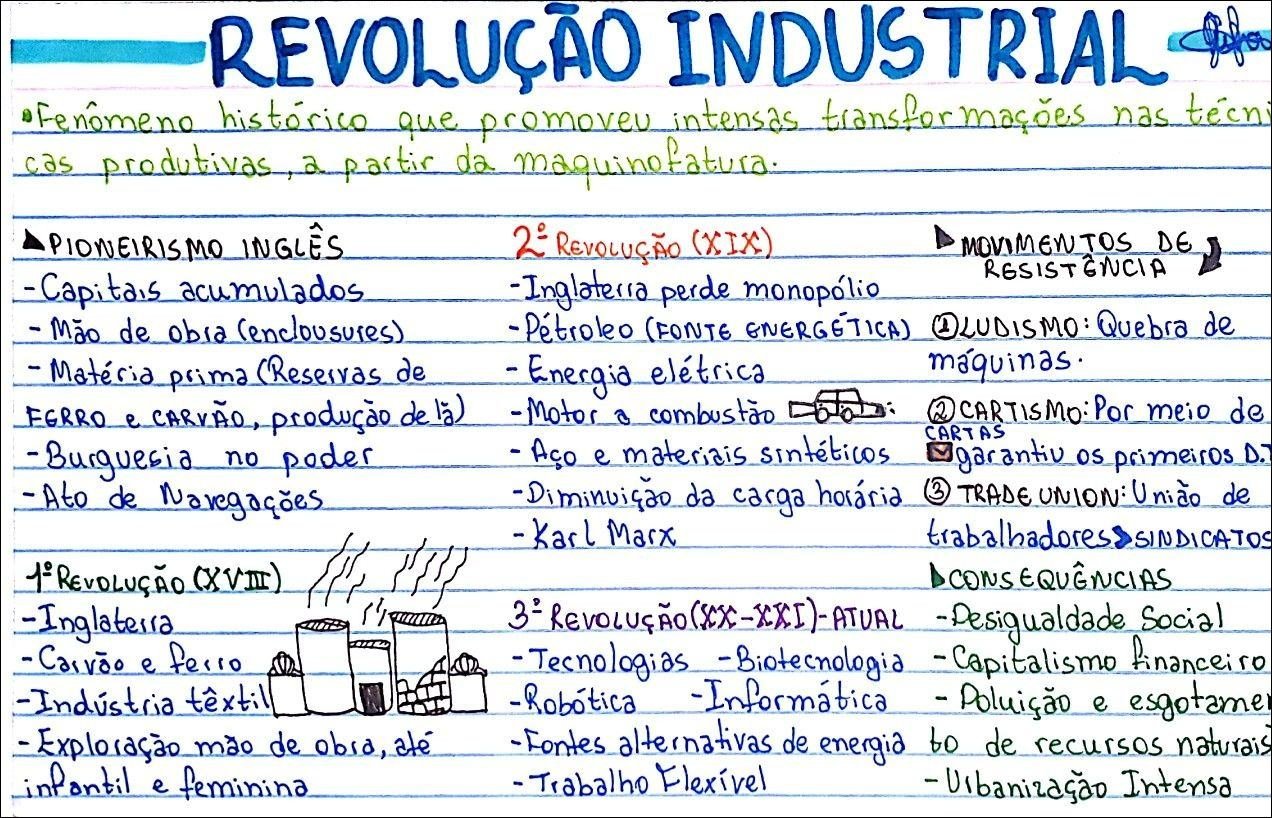 REVOLUÇÃO INDUSTRIAL
•Fenômeno histórico que promoveu intensas transformações nas técni
cas produtivas, a partir da maquinofatura.
PIONEIRISMO INGLÊS
-Capitais acumulados
- Mão de obra (enclousures)
- Matéria prima (Reservas de
FERRO e CARVÃO, produção de lã)
- Burguesia no poder
- Ato de Navegações
1º REVOLUÇÃO (XVIII)
- Inglaterra
- Carvão e ferro
- Indústria têxtil
- Exploração mão de obra, até
infantil e feminina
2º REVOLUÇÃO (XIX)
-Inglaterra perde monopólio
-Pétroleo (FONTE ENERGÉTICA)
- Energia elétrica
-Motor a combustão
- Aço e materiais sintéticos
-Diminuição da carga horária
- Karl Marx
3º REVOLUÇÃO (XX-XXI)-ATUAL
-Tecnologias -Biotecnologia
-Robótica -Informática
-Fontes alternativas de energia
-Trabalho Flexível
MOVIMENTOS DE
RESISTÊNCIA
① LUDISMO: Quebra de
máquinas.
② CARTISMO: Por meio de
CARTAS
garantiu os primeiros D.T
③ TRADE UNION: União de
trabalhadores SINDICATOS
CONSEQUÊNCIAS
-Desigualdade Social
-Capitalismo financeiro
- Poluição e esgotamen
to de recursos naturais
- Urbanização Intensa